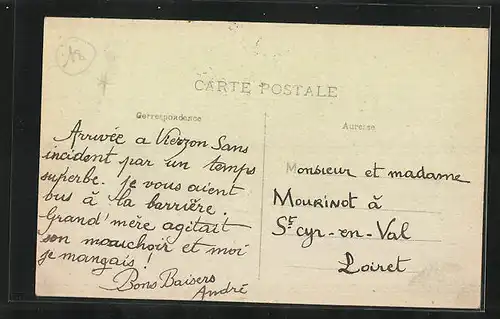 CARTE POSTALE
Correspondance
Adresse
Arrivée a Vierzon Sans
incident par un temps
superbe. je vous aient
vus à la barrière.
Grand'mère agitait
son mouchoir et moi
je mangais !
Bons Baisers
André
Monsieur et madame
MOURINOT à
St cyr-en-Val
Loiret